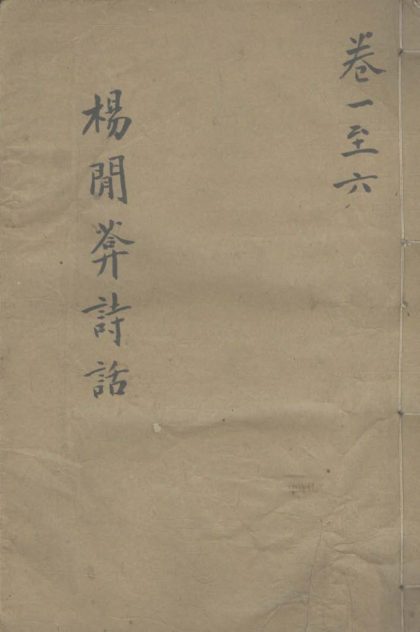 卷一至六
楊閒葊詩話